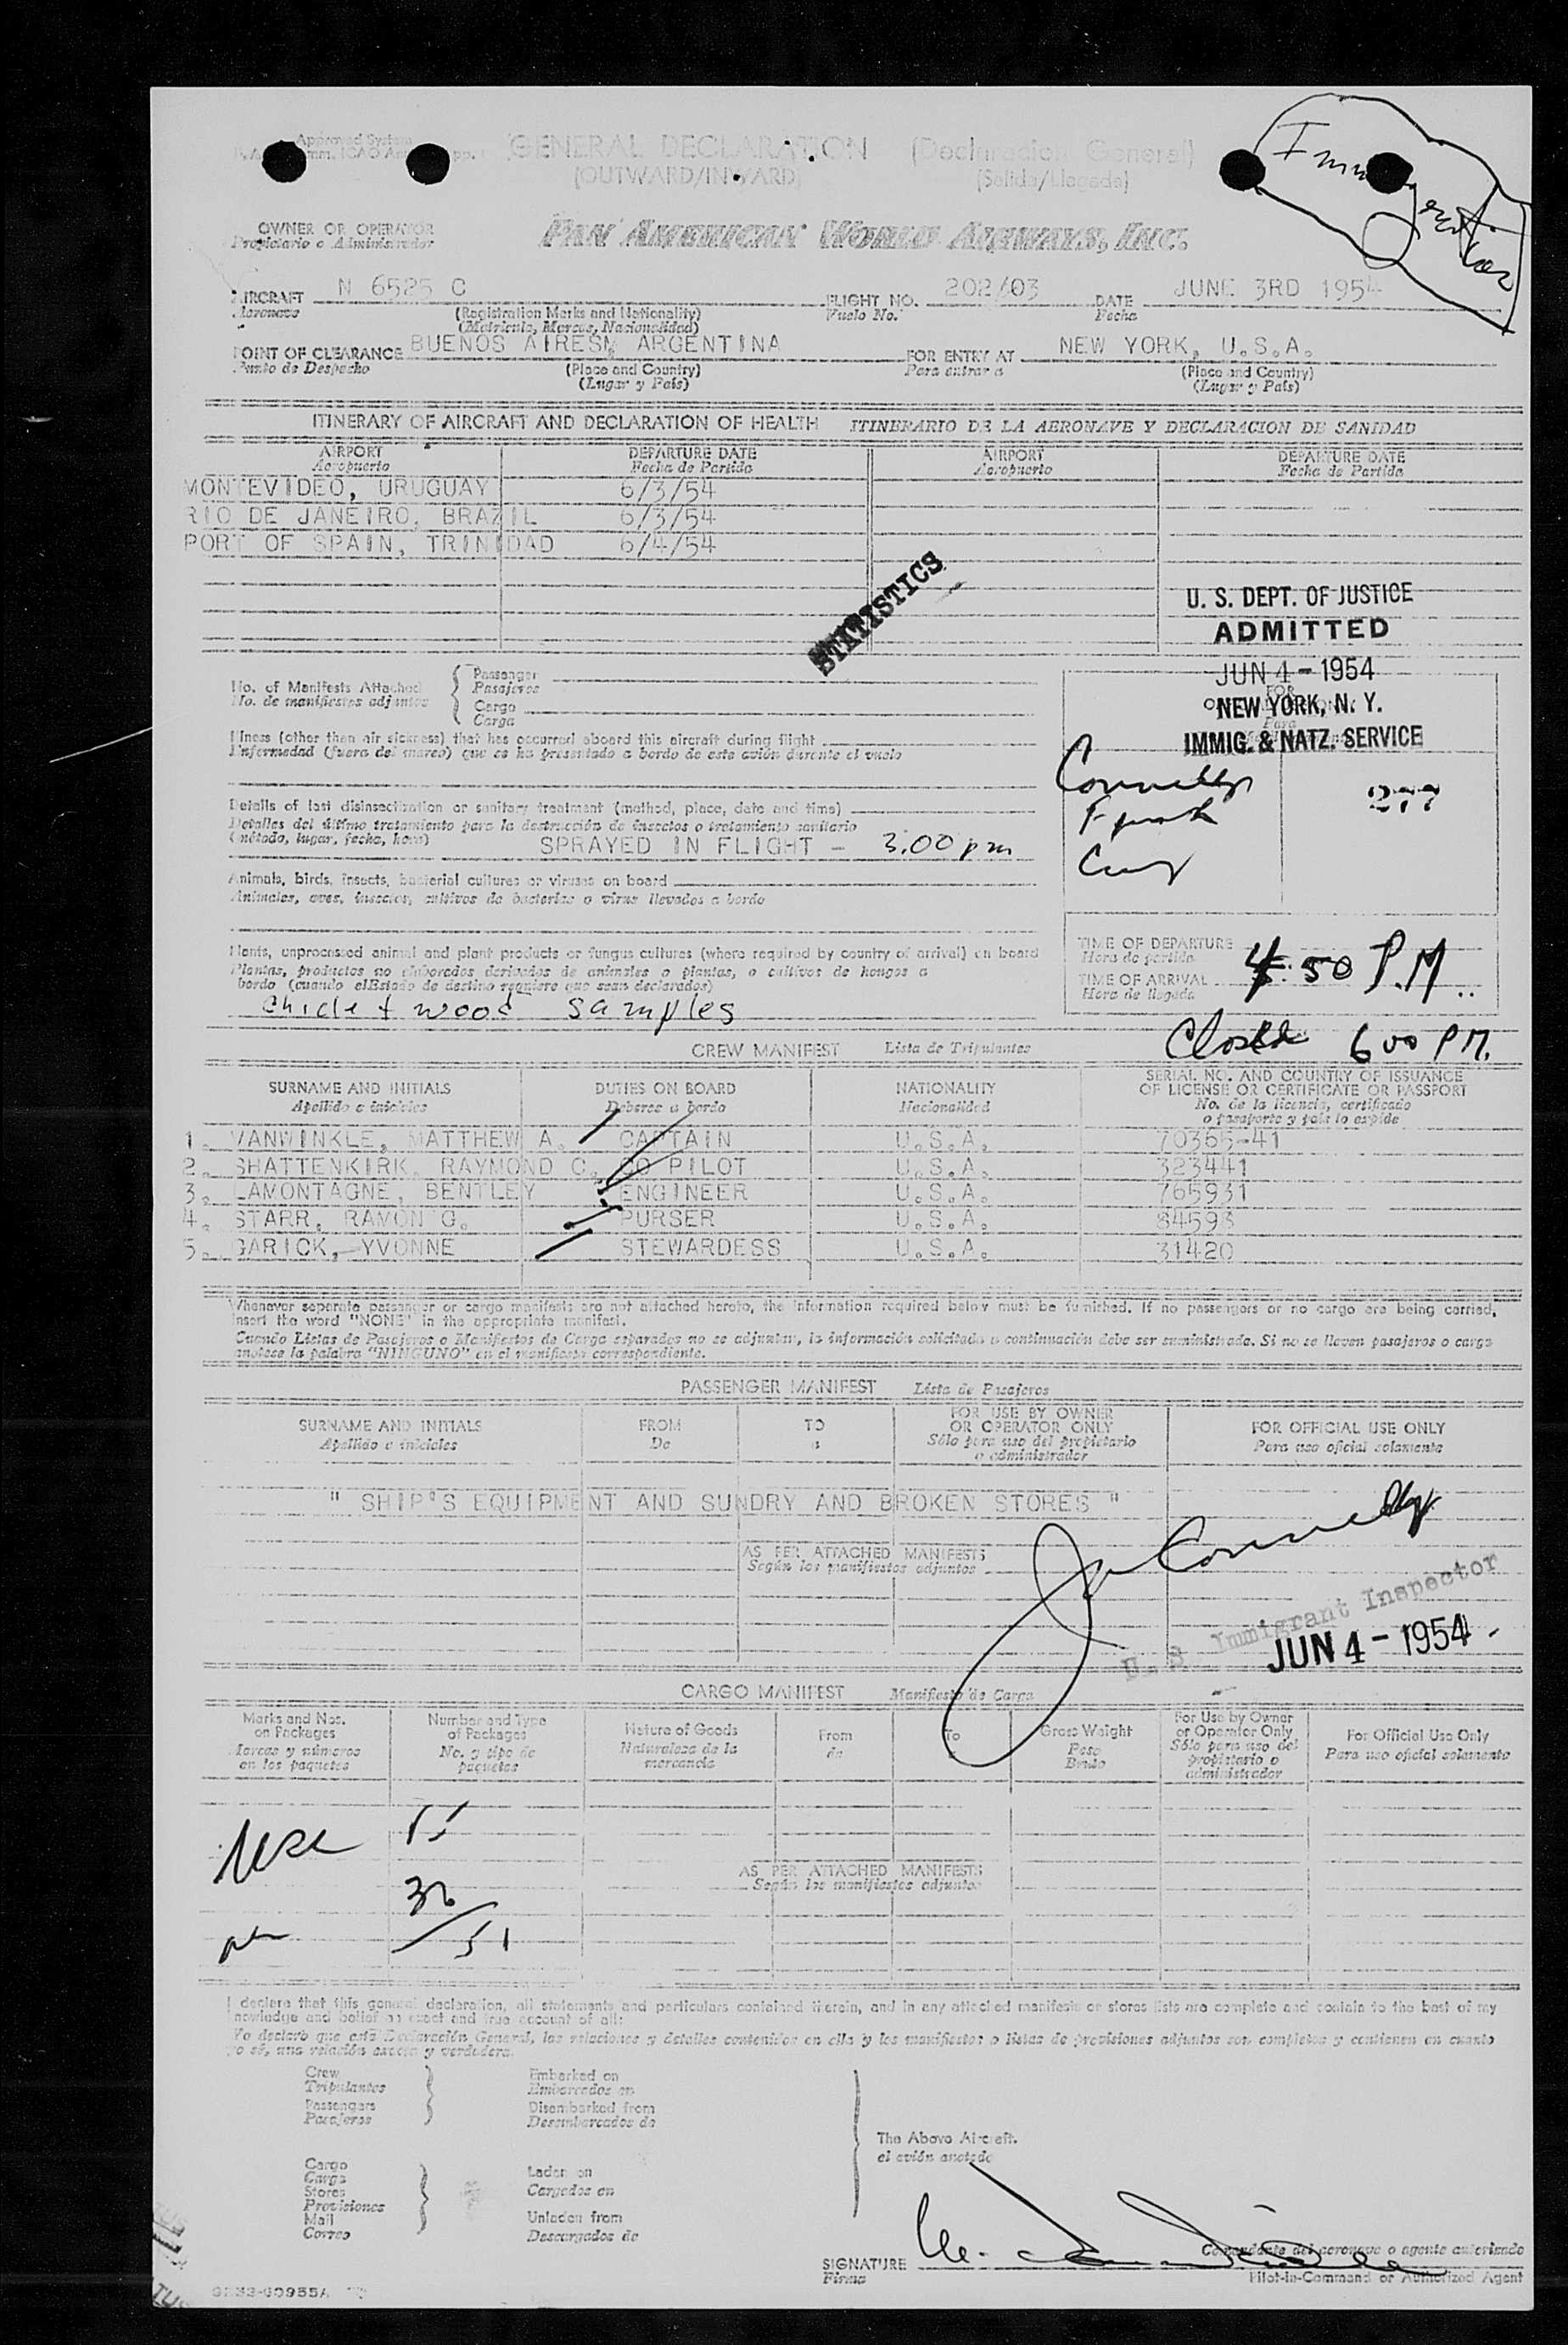 Approved System
GENERAL DECLARATION (Declaracion General)
(OUTWARD/INWARD) (Salida/Llegada)
Immigration
OWNER OR OPERATOR
Propietario o Administrador
PAN AMERICAN WORLD AIRWAYS, INC.
AIRCRAFT N 6525 C FLIGHT NO. 202/03 DATE JUNE 3RD 1954
Aeronave (Registration Marks and Nationality) Vuelo No. Fecha
(Matricula, Marcas, Nacionalidad)
POINT OF CLEARANCE BUENOS AIRESM ARGENTINA FOR ENTRY AT NEW YORK, U.S.A.
Punto de Despacho (Place and Country) Para entrar a (Place and Country)
(Lugar y País) (Lugar y País)
ITINERARY OF AIRCRAFT AND DECLARATION OF HEALTH ITINERARIO DE LA AERONAVE Y DECLARACION DE SANIDAD
AIRPORT DEPARTURE DATE AIRPORT DEPARTURE DATE
Aeropuerto Fecha de Partida Aeropuerto Fecha de Partida
MONTEVIDEO, URUGUAY 6/3/54
RIO DE JANEIRO, BRAZIL 6/3/54
PORT OF SPAIN, TRINIDAD 6/4/54
STATISTICS
U. S. DEPT. OF JUSTICE
ADMITTED
JUN 4 - 1954
NEW YORK, N. Y.
IMMIG. & NATZ. SERVICE
No. of Manifests Attached
No. de manifiestos adjuntos
Passenger
Pasajeros
Cargo
Carga
Illness (other than air sickness) that has occurred aboard this aircraft during flight
Enfermedad (fuera del mareo) que se ha presentado a bordo de este avión durante el vuelo
Connelly
Details of last disinsectization or sanitary treatment (method, place, date and time)
Detalles del último tratamiento para la destrucción de insectos o tratamiento sanitario
(método, lugar, fecha, hora) SPRAYED IN FLIGHT - 3.00 pm
Animals, birds, insects, bacterial cultures or viruses on board
Animales, aves, insectos, cultivos de bacterias o virus llevados a bordo
Plants, unprocessed animal and plant products or fungus cultures (where required by country of arrival) on board
Plantas, productos no elaborados derivados de animales o plantas, o cultivos de hongos a
bordo (cuando el Estado de destino requiere que sean declarados)
Chicle + wood samples
TIME OF DEPARTURE
Hora de partida
TIME OF ARRIVAL 4:50 P.M.
Hora de llegada
Closed 6 00 PM.
CREW MANIFEST Lista de Tripulantes
SURNAME AND INITIALS DUTIES ON BOARD NATIONALITY SERIAL NO. AND COUNTRY OF ISSUANCE OF LICENSE OR CERTIFICATE OR PASSPORT
Apellido e iniciales Deberes a bordo Nacionalidad No. de la licencia, certificado o pasaporte y país lo expide
1. VANWINKLE, MATTHEW A. CAPTAIN U.S.A. 70365-41
2. SHATTENKIRK, RAYMOND C. CO PILOT U.S.A. 323441
3. LAMONTAGNE, BENTLEY ENGINEER U.S.A. 765931
4. STARR, RAMON G. PURSER U.S.A. 84598
5. GARICK, YVONNE STEWARDESS U.S.A. 31420
Whenever separate passenger or cargo manifests are not attached hereto, the information required below must be furnished. If no passengers or no cargo are being carried,
insert the word "NONE" in the appropriate manifest.
Cuando Listas de Pasajeros o Manifiestos de Carga separados no se adjuntan, la información solicitada a continuación debe ser suministrada. Si no se llevan pasajeros o carga
anotese la palabra "NINGUNO" en el manifiesto correspondiente.
PASSENGER MANIFEST Lista de Pasajeros
SURNAME AND INITIALS FROM TO FOR USE BY OWNER OR OPERATOR ONLY FOR OFFICIAL USE ONLY
Apellido e iniciales De a Sólo para uso del propietario o administrador Para uso oficial solamente
" SHIP'S EQUIPMENT AND SUNDRY AND BROKEN STORES "
AS PER ATTACHED MANIFESTS
Según los manifiestos adjuntos
Connelly
U. S Immigrant Inspector
JUN 4 - 1954
CARGO MANIFEST Manifiesto de Carga
Marks and Nos. on Packages Number and Type of Packages Nature of Goods From To Gross Weight For Use by Owner or Operator Only For Official Use Only
Marcas y números en los paquetes No. y tipo de paquetes Naturaleza de la mercancía de Peso Bruto Sólo para uso del propietario o administrador Para uso oficial solamente
AS PER ATTACHED MANIFESTS
Según los manifiestos adjuntos
51
I declare that this general declaration, all statements and particulars contained therein, and in any attached manifests or stores lists are complete and contain to the best of my
knowledge and belief an exact and true account of all:
Yo declaro que está Declaración General, las relaciones y detalles contenidos en ella y los manifiestos o listas de provisiones adjuntos son completos y contienen en cuanto
yo sé, una relación exacta y verdadera.
Crew Embarked on
Tripulantes Embarcados en
Passengers Disembarked from
Pasajeros Desembarcados de
The Above Aircraft.
el avión anotado
Cargo Laden on
Carga Cargados en
Stores
Provisiones
Mail Unladen from
Correo Descargados de
SIGNATURE
Firma
Comandante del aeronave o agente autorizado
Pilot-in-Command or Authorized Agent